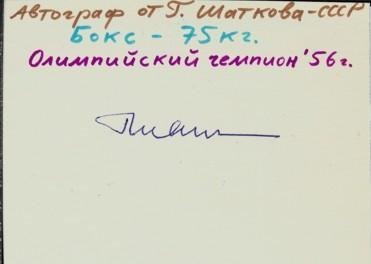 Автограф от Г. Шаткова-СССР
Бокс - 75кг.
Олимпийский чемпион'56г.